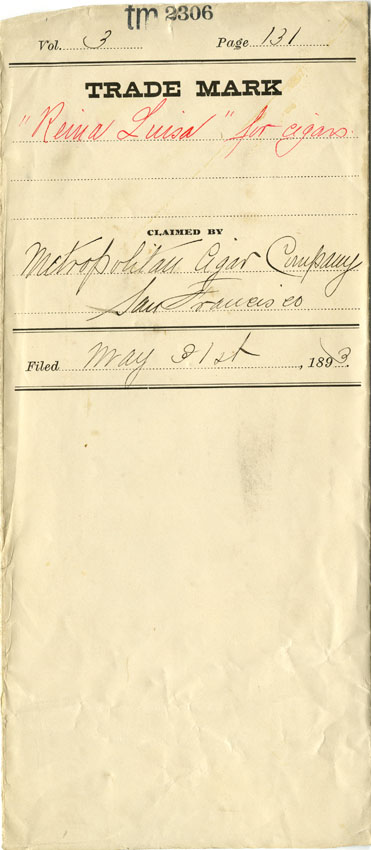 tm 2306
Vol. 3 Page 131
TRADE MARK
"Reina Luisa" for cigars.
CLAIMED BY
Metropolitan Cigar Company
San Francisco
Filed May 31st, 1893.